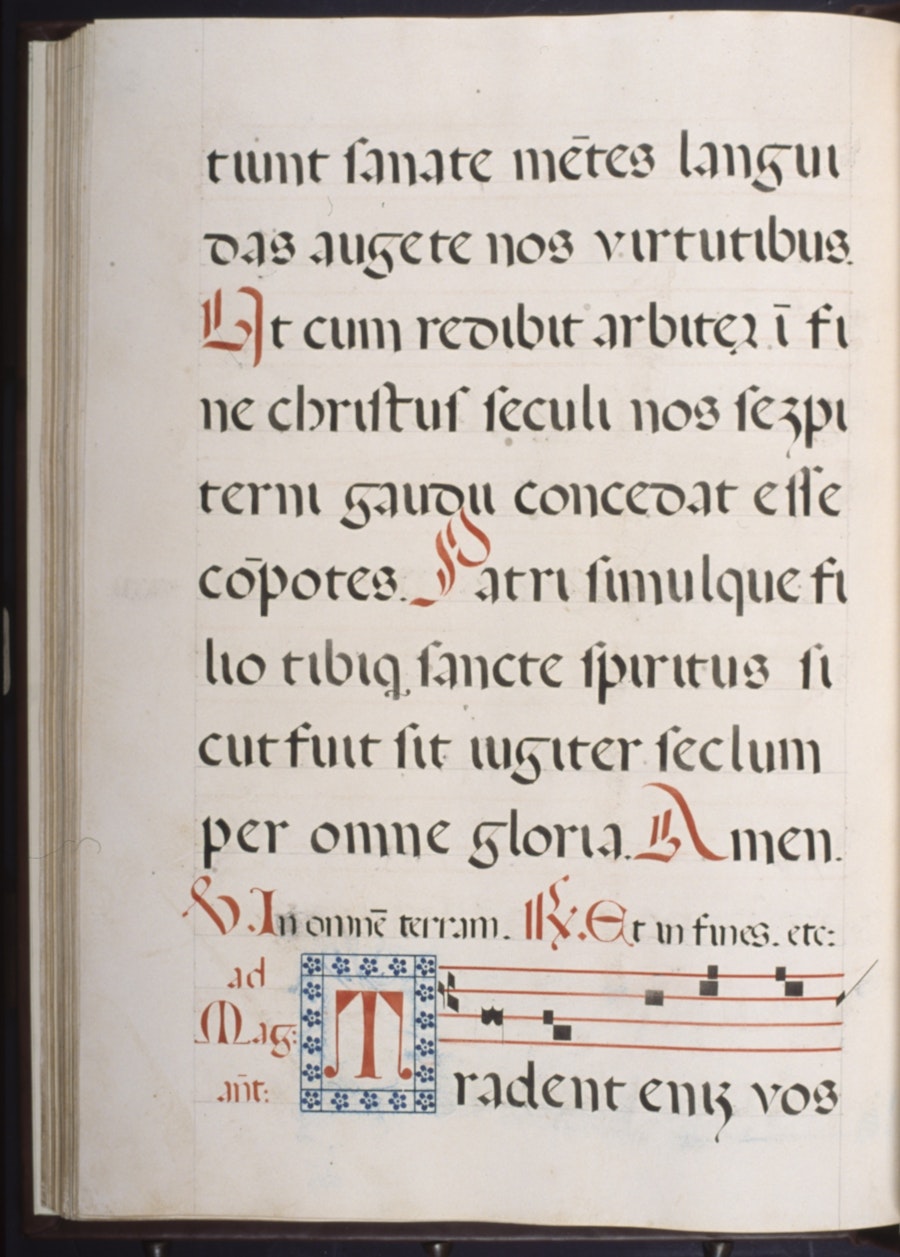 tiunt sanate mētes langui
das augete nos virtutibus.
Ut cum redibit arbiter ī fi
ne christus seculi nos seʒpi
terni gaudii concedat esse
cōpotes. Patri simulque fi
lio tibiq sancte spiritus si
cut fuit sit iugiter seclum
per omne gloria. Amen.
V. In omnē terram. R. Et in fines. etc:
ad
Mag:
añt:
Tradent eniʒ vos